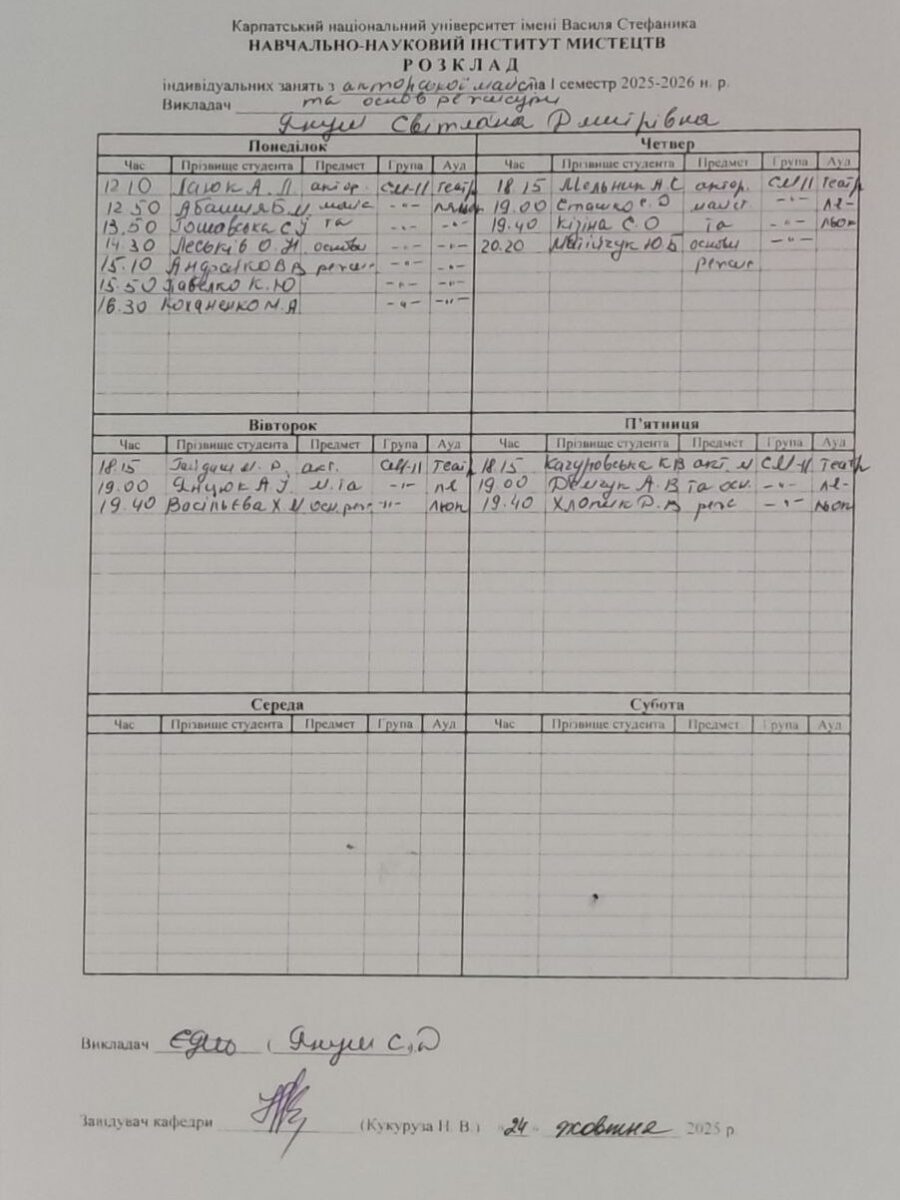 Карпатський національний університет імені Василя Стефаника
НАВЧАЛЬНО-НАУКОВИЙ ІНСТИТУТ МИСТЕЦТВ
РОЗКЛАД
індивідуальних занять з акторської майст на І семестр 2025-2026 н. р.
та основ режисури
Викладач
Світлана Дмитрівна
Понеділок
Час Прізвище студента Предмет Група Ауд
12.10 А. Л. актор. СМ-11 Театр
12.50 майс -"-
13.50 та -"- -"-
14.30 Леськів О. Н основи -"- -"-
15.10 режис -"- -"-
15.50 Павелко К. Ю -"- -"-
16.30 Коханенко М. Я -"- -"-
Четвер
Час Прізвище студента Предмет Група Ауд
18.15 Мельник А С актор. СМ-11 Театр
19.00 Сташко Є. О майст -"- ля-
19.40 Кізіна С. О та -"- льок
20.20 Ю Б основи -"-
режис
Вівторок
Час Прізвище студента Предмет Група Ауд
18.15 акт. СМ-11 Театр
19.00 Янцюк А І м. та -"- ля
19.40 Васільєва Х. М осн. реж -"- льок
П'ятниця
Час Прізвище студента Предмет Група Ауд
18.15 Качуровська К В акт. м СМ-11 Театр
19.00 А. В та осн. -"- ля-
19.40 Д. В реж -"- льок
Середа
Час Прізвище студента Предмет Група Ауд
Субота
Час Прізвище студента Предмет Група Ауд
Викладач ( С. Д
Завідувач кафедри (Кукуруза Н. В.) "24" жовтня 2025 р.